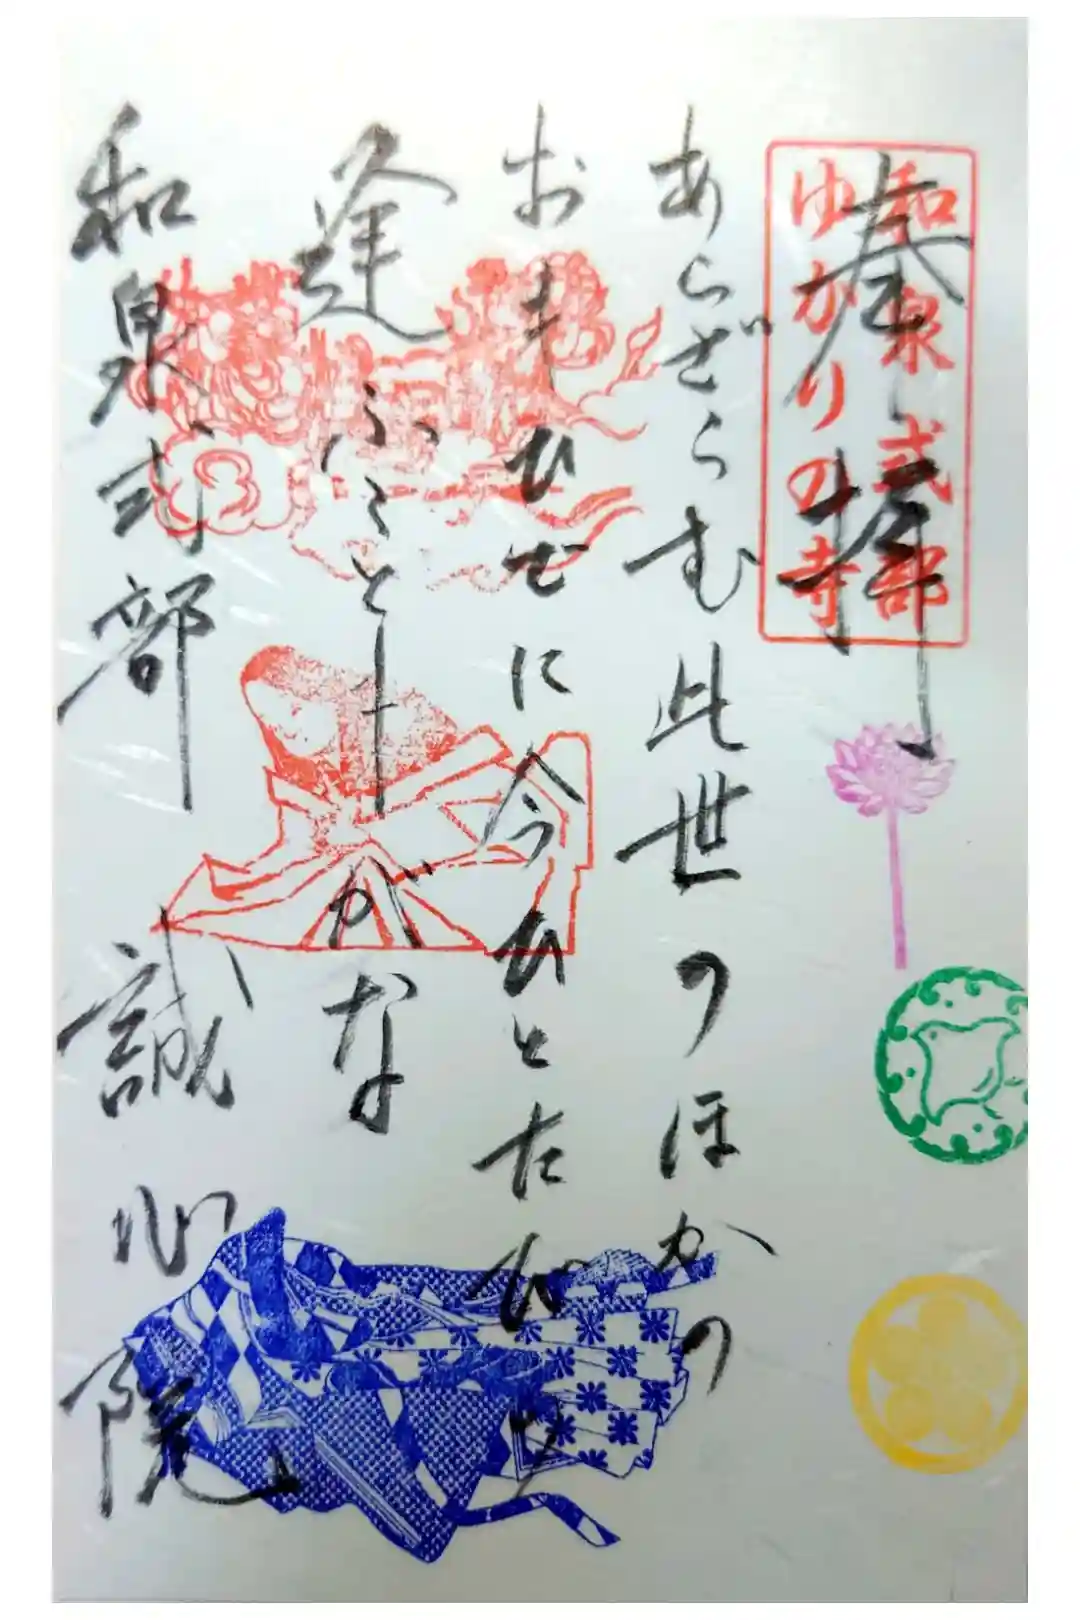 奉拝
和泉式部
ゆかりの寺
あらざらむ此世のほかの
おもひでに今ひとたびの
逢ふことも
がな
和泉式部 誠心院